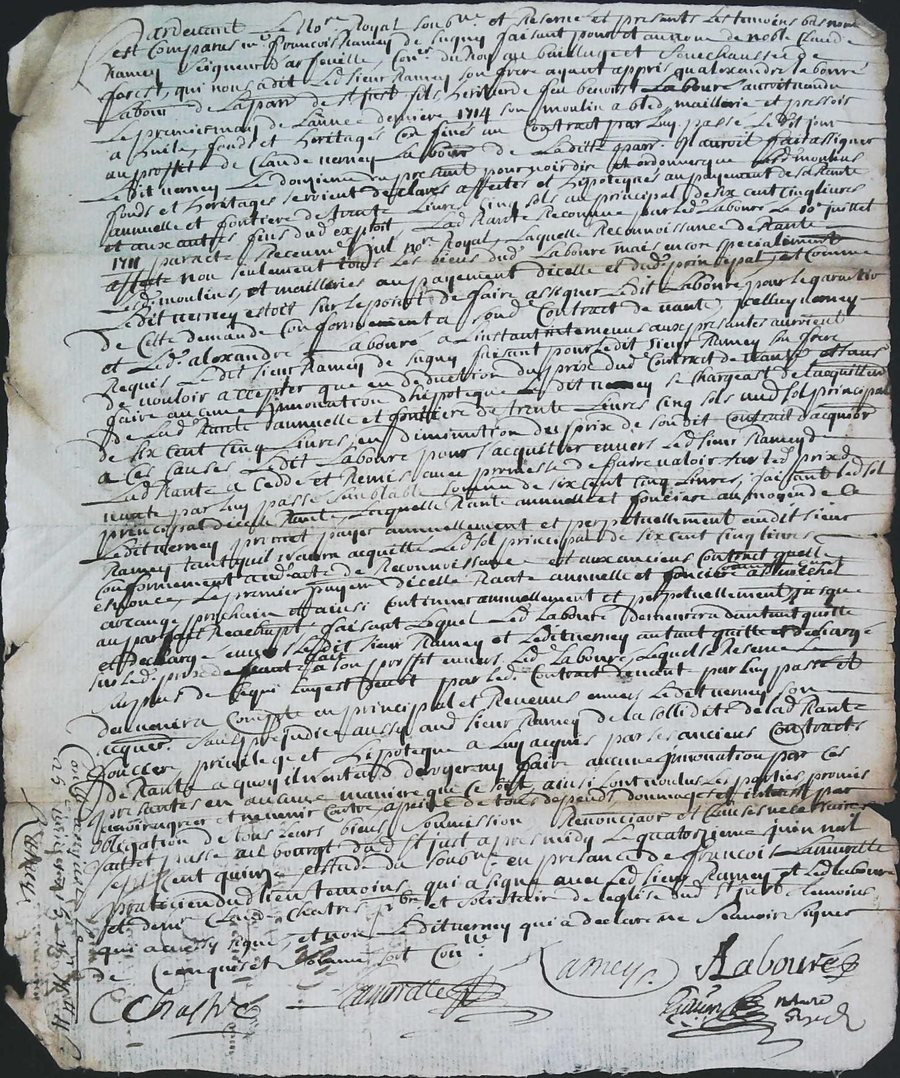 Pardevant le No.re Royal soub.né et Reservé et presants les temoins bas nomé
est Comparus m.e françois Ramey de Sugny faisant pour et au nom de noble Claude
Ramey Seigneur d'arfeuille, Con.er du Roy au bailliage et Seneschaussée de
forest, qui nous a dit led. sieur Ramey son frere ayant appris qu'alexandre labouré
labour. de la parr. de St just fils heritier de feu benoist Labouré auroit vandu
le premier may de l'année derniere 1714 son moulin a bled, maillerie et pressois
a huile, fonds et heritages confinés au Contract par luy passé led. jour
au proffit de Claude verney labour. de laditte parr. Il auroit fait assigner
ledit verney le douzieme du presant pour voir dire et ordonner que led. moulin
fonds et heritages seroient declarés affectés et hipotequés au payement de sa Rante
annuelle et fonciere de trante livres cinq sols au principal de six cent cinq livres
et aux autres fins dud. exploit lad. Rante Reconnue par led. Labouré le 10.e juillet
1711 par acte Receu no.re Royal, laquelle Reconnoissance de Rante
affecte non seulement tous les biens dud. Labouré mais encor specialement
lesd. moulins, et mailleries au payement d'icelle et dud. principal, et comme
ledit verney estoit sur le point de faire assigner ledit Labouré pour le garantir
de cette demande conformement a son Contract de vante, icelluy verney
et led. alexandre Labouré a l'instant intervenus aux presantes auroient
Requis ledit sieur Ramey de Sugny faisant pour ledit sieur Ramey son frere
de vouloir accepter que en deduction du prix dud. Contract de vante et sans
faire aucune Innovation d'hipoteque ledit verney se chargeast de l'acquittement
de lad. Rante annuelle et fonciere de trante livres cinq sols aud. sol principal
de six cent cinq livres, en diminution du prix de son dit Contrait d'acquison
a ces causes ledit Labouré pour s'acquitter envers led. sieur Ramey de
lad. Rante a cedde et Remis avec promesse de faire valoir sur led. prix de
vante par luy passé semblable somme de six cent cinq livres, faisant led. sol
principal d'icelle Rante, laquelle Rante annuelle et fonciere au moyen de ce
ledit verney promet payer annuellement et perpetuellement audit sieur
Ramey tant qu'il n'aura acquitté led. sol principal de six cent cinq livres
conformement aud. acte de Reconnoissance et aux anciens Contract qu'elle
enonce, le premier payem. d'icelle Rante annuelle et fonciere a St michel
archange prochain et ainsi continuer annuellement et perpetuellement jusque
au parfait Reachapt, faisant lequel led. Labouré demeurera d'autant quitte
et dechargé envers ledit sieur Ramey et ledit verney autant quitte et dechargé
sur led. prix de vante fait a son proffit envers led. Labouré, lequel se Reserve le
surplus de ce qui luy est deub par led. Contract de vant par luy passé et
donnera compte en principal et Revenus envers ledit verney son
acquer. sans prejudice aussy aud. sieur Ramey de la sollidité de lad. Rante
fonciere privilege et hipoteque a luy acquis par ses anciens Contracts
de Rante a quoy il n'entand deroger ny faire aucune Innovation par ces
presantes en aucune maniere que ce soit, ainsi l'ont voulus les parties promis
avoir agreer et ne venir contre a peine de tous depends dommages et interest par
obligation de tous leurs biens Soumission Renonciaon et clauses necessaires
fait et passé au bourgt dud. St just apres midy le quatorzieme juin mil
sept cent quinze estude du soub.né en presance de françois Lauvrette
praticien dud. lieu temoins, qui a signé avec led. sieur Ramey et led. labouré
et de m.e Claude Chatre et Secretaire de l'eglise dud. St just temoins
qui a aussy signé, et non ledit verney qui a declaré ne scavoir signer
de ce enquis et sommé soit Con.lé
Ramey
ALabouré
CChastre
Lauvrette
notaire
Royal
Ramey